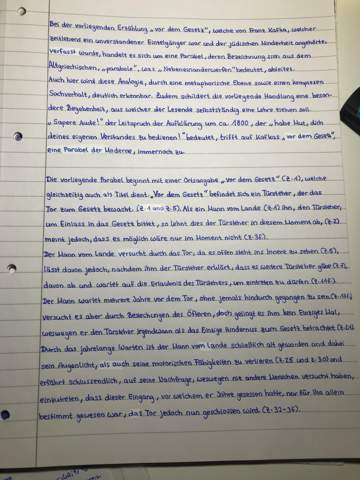 Bei der vorliegenden Erzählung „vor dem Gesetz", welche von Franz Kafka, welcher
zeitlebens ein unverstandener Einzelgänger war und der jüdischen Minderheit angehörte,
verfasst wurde, handelt es sich um eine Parabel, deren Bezeichnung sich aus dem
Altgriechischen, „parabole", was „Nebeneinanderwerfen" bedeutet, ableitet.
Auch hier wird diese Analogie, durch eine metaphorische Ebene sowie einen komplexen
Sachverhalt, deutlich erkennbar. Zudem schildert die vorliegende Handlung eine beson-
dere Begebenheit, aus welcher der Lesende selbstständig eine Lehre ziehen soll.
„Sapere Aude!" der Leitspruch der Aufklärung um ca. 1800, der „habe Mut, dich
deines eigenen Verstandes zu bedienen!" bedeutet, trifft auf Kafkas „vor dem Gesetz",
eine Parabel der Moderne, immernoch zu.
Die vorliegende Parabel beginnt mit einer Ortsangabe „vor dem Gesetz" (Z.1), welche
gleichzeitig auch als Titel dient. „Vor dem Gesetz" befindet sich ein Türsteher, der das
Tor zum Gesetz bewacht. (Z.1 und Z.5). Als ein Mann vom Lande (Z.1) ihn, den Türsteher,
um Einlass in das Gesetz bittet, so lehnt dies der Türsteher in diesem Moment ab, (Z.2)
meint jedoch, dass es möglich wäre nur im Moment nicht (Z.3f.).
Der Mann vom Lande versucht durch das Tor, da es offen steht ins Innere zu sehen (Z.5),
lässt davon jedoch, nachdem ihm der Türsteher erklärt, dass es weitere Türsteher gäbe
davon ab und wartet auf die Erlaubnis des Türstehers, um eintreten zu dürfen
Der Mann wartet mehrere Jahre vor dem Tor, ohne jemals hindurch gegangen zu sein
versucht es aber durch Bestechungen des Öfteren, doch gelingt es ihm kein Einziges Mal,
weswegen er den Türsteher irgendwann als das Einzige Hindernis zum Gesetz betrachtet
Durch das jahrelange Warten ist der Mann vom Lande schließlich alt geworden und dabei
sein Augenlicht, als auch seine motorischen Fähigkeiten zu verlieren (Z.25 und Z.30) und
erfährt schlussendlich, auf seine Nachfrage, weswegen nie andere Menschen versucht haben,
einzutreten, dass dieser Eingang, vor welchem er Jahre gesessen hatte, nur für ihn allein
bestimmt gewesen war, das Tor jedoch nun geschlossen wird (Z.32-36).